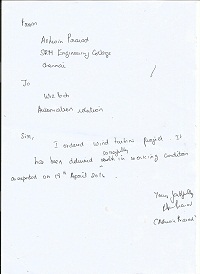 From
Ashwin Prasad
SRM Engineering College
Chennai
To
Wiz Tech
Automation solution
Sir,
I ordered wind turbine project It
completely
has been delivered in working condition
accepted on 19th April
Yours faithfully
(Ashwin Prasad)